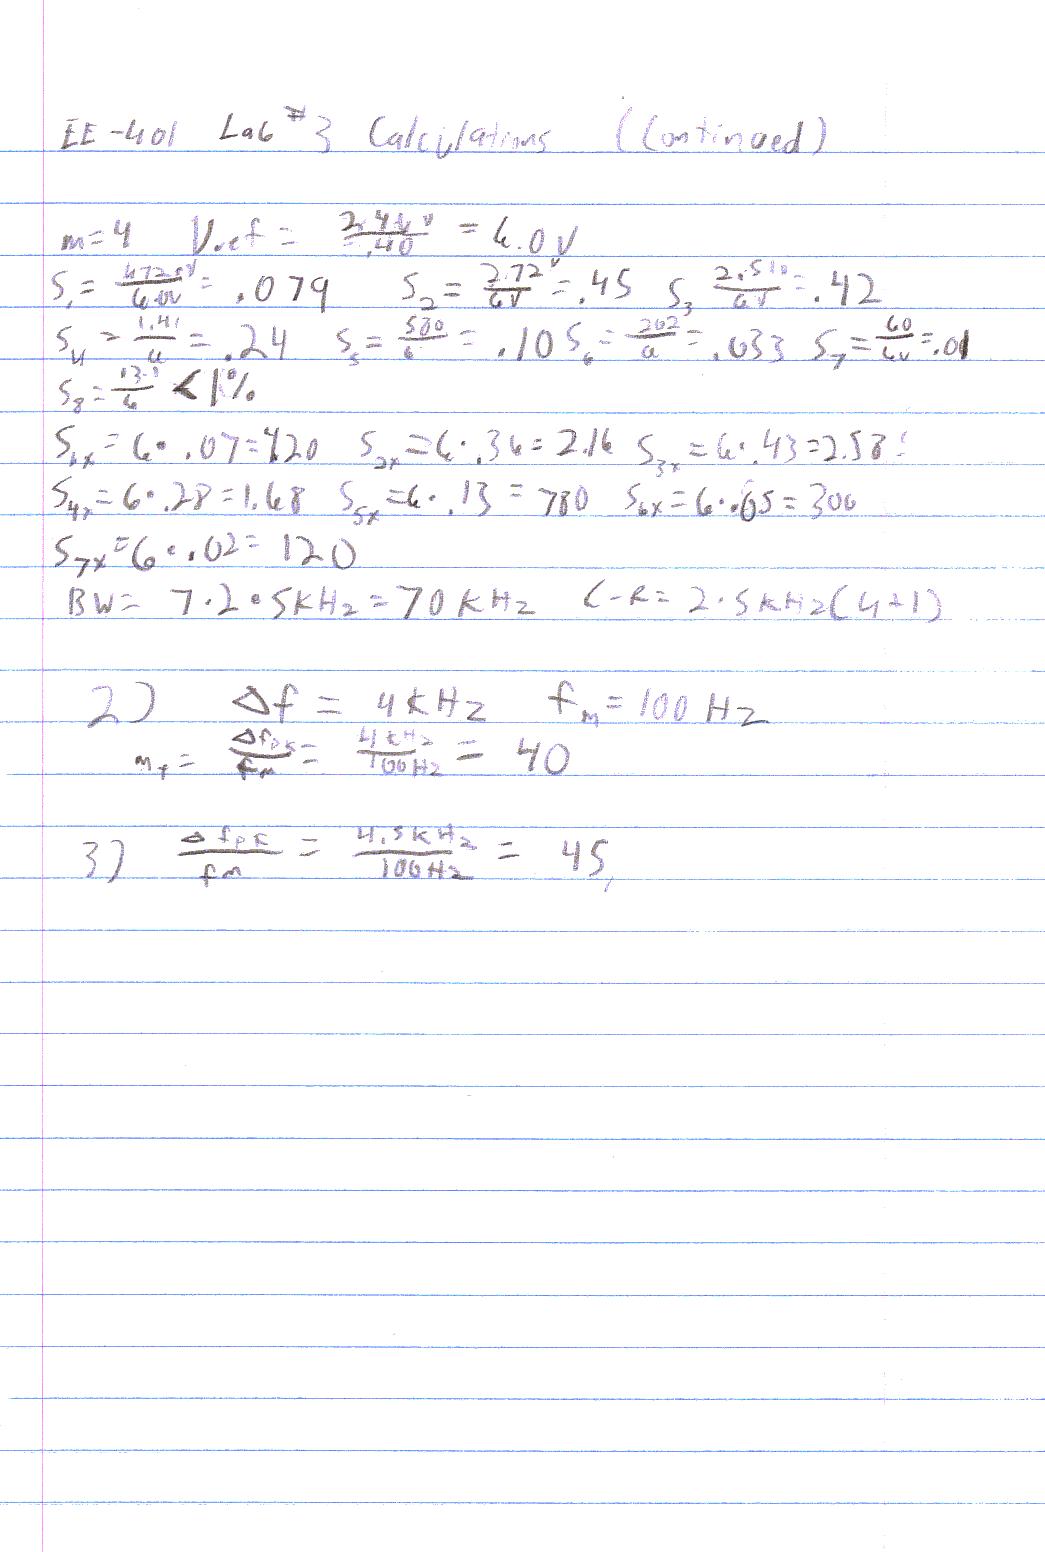 EE-401 Lab #3 Calculations (Continued)
m=4 Vref = 2.4 V/.40 = 6.0V
S1 = 472.5V/6.0V = .079 S2 = 2.72V/6V = .45 S3 2.510/6V = .42
S4 = 1.41/6 = .24 S5 = 580/6 = .10 S6 = 202/6 = .033 S7 = 60/6V = .01
S8 = /6 < 1%
S1x = 6·.07 = 420 S2x = 6·.36 = 2.16 S3x = 6·.43 = 2.58
S4x = 6·.28 = 1.68 S5x = 6·.13 = 780 S6x = 6·.05 = 300
S7x = 6·.02 = 120
BW = 7·2·5KHz = 70KHz C-R = 2·5KHz(4+1)
2) Δf = 4KHz fm = 100 Hz
mf = Δfpk/fm = 4KHz/100Hz = 40
3) Δfpk/fm = 4.5KHz/100Hz = 45